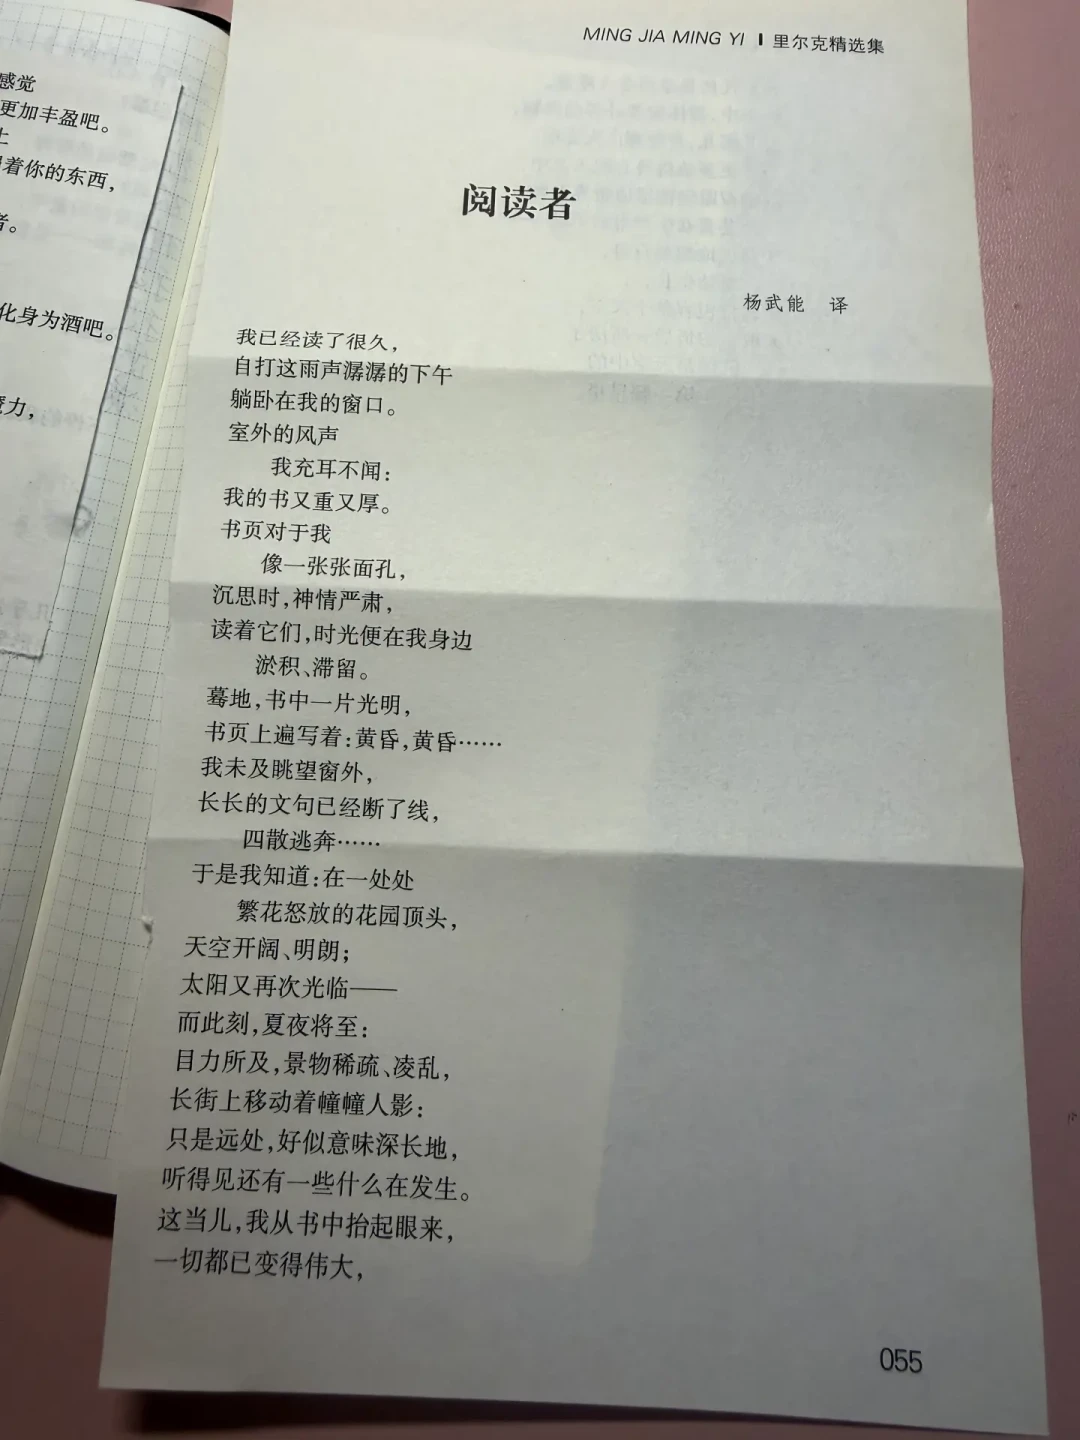 感觉
更加丰盈吧。
着你的东西，
者。
化身为酒吧。
力，
MING JIA MING YI | 里尔克精选集
阅读者
杨武能 译
我已经读了很久，
自打这雨声潺潺的下午
躺卧在我的窗口。
室外的风声
我充耳不闻：
我的书又重又厚。
书页对于我
像一张张面孔，
沉思时，神情严肃，
读着它们，时光便在我身边
淤积、滞留。
蓦地，书中一片光明，
书页上遍写着：黄昏，黄昏……
我未及眺望窗外，
长长的文句已经断了线，
四散逃奔……
于是我知道：在一处处
繁花怒放的花园顶头，
天空开阔、明朗；
太阳又再次光临——
而此刻，夏夜将至：
目力所及，景物稀疏、凌乱，
长街上移动着幢幢人影：
只是远处，好似意味深长地，
听得见还有一些什么在发生。
这当儿，我从书中抬起眼来，
一切都已变得伟大，
055